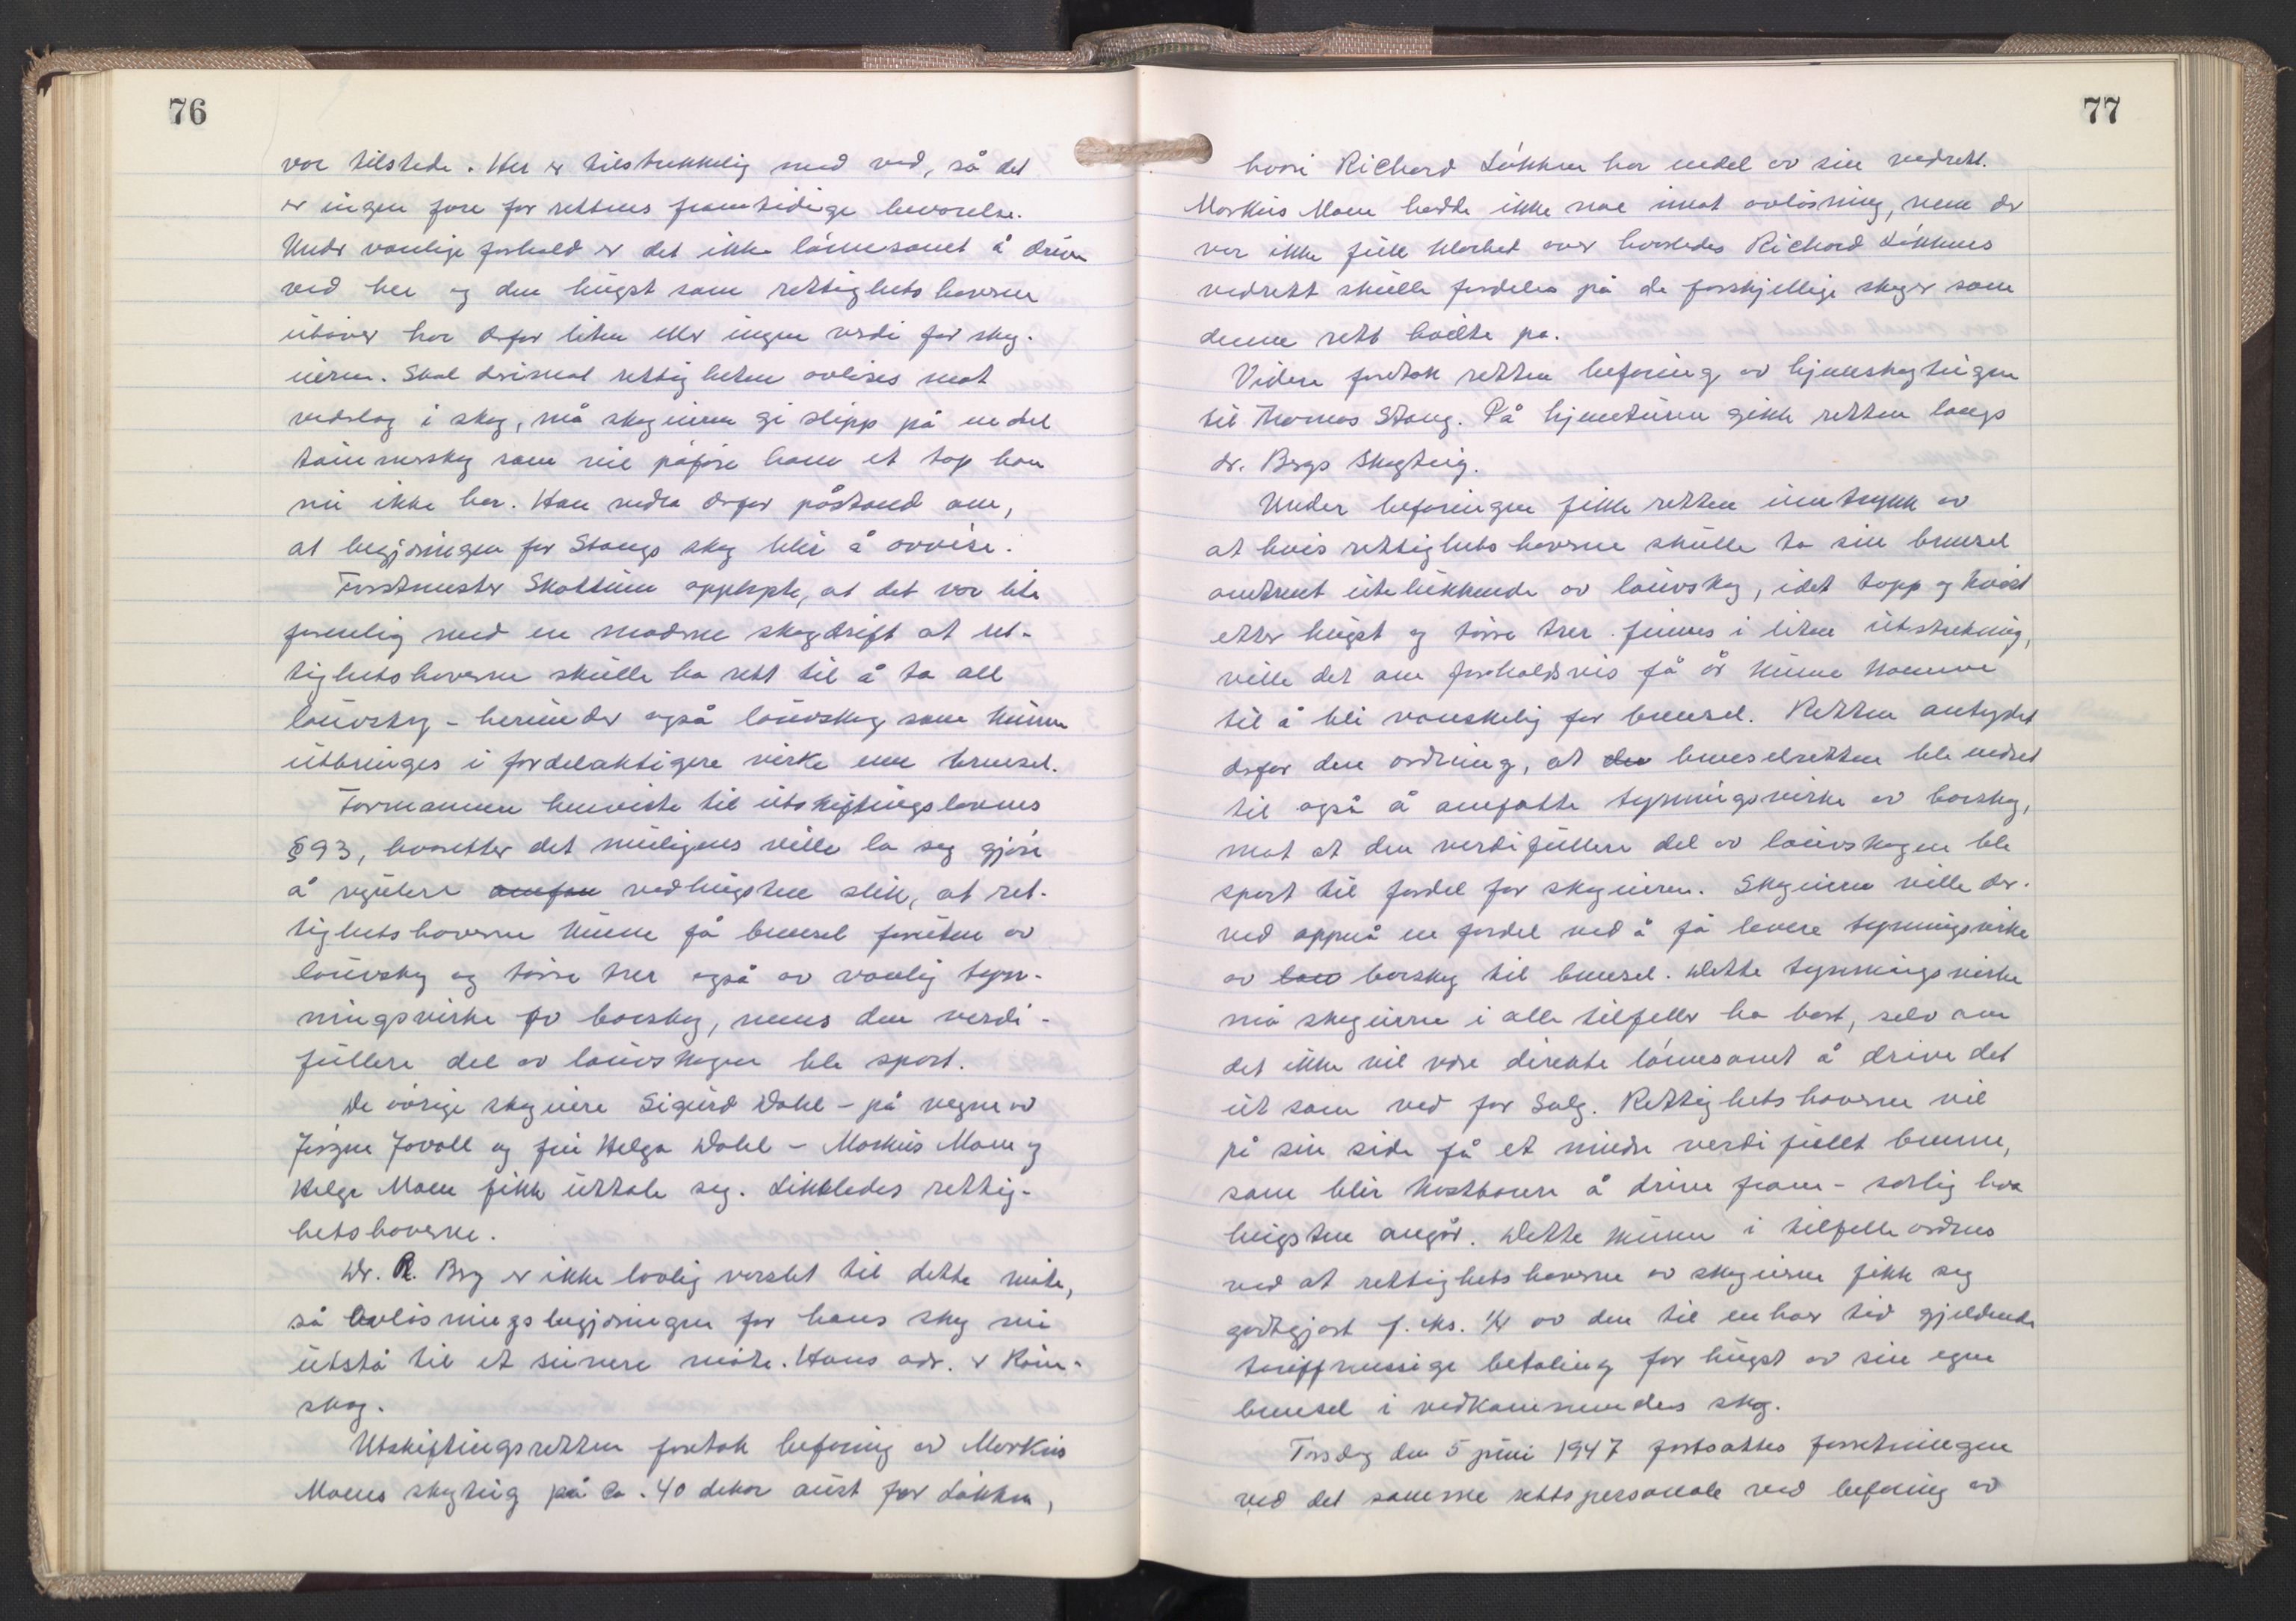 76
var tilstede. Her er tilstrekkelig med ved, så det
er ingen fare for rettens framtidige bevarelse.
Under vanlige forhold er det ikke lönnsomt å drive
ved her og den hugst som rettighetshaverne
utöver har derfor liten eller ingen verdi for skog-
eieren. Skal derimot rettigheten avlöses mot
vedslag i skog, må skogeieren gi slipp på en del
tömmerskog som vil påföre ham et tap han
nu ikke har. Han nedla derfor påstand om,
at begjæringen for Stangs skog blir å avvise.
Forstmester Skattum opplyste, at det var lite
forenlig med en moderne skogdrift at ret-
tighetshaverne skulle ha rett til å ta all
lauvskog - herunder også lauvskog som kunne
utbringes i fordelaktigere virke enn brensel.
Formannen henviste til utskiftingslovens
§ 93, hvoretter det muligens ville la seg gjöre
å regulere vedhugsten slik, at ret-
tighetshaverne kunne få brensel foruten av
lauvskog og törre trer også av vanlig tyn-
ningsvirke av barskog, mens den verdi-
fullere del av lauvskogen ble spart.
De övrige skogeiere Sigurd Dahl - på vegne av
Jörgen Jovall og fru Helga Dahl - Markus Moen og
Helge Moen fikk uttale seg. Likeledes rettig-
hetshaverne.
Dr. R. Berg er ikke lovlig varslet til dette möte,
så avlösningsbegjæringen for hans skog må
utstå til et seinere möte. Hans adr. er Röm-
skog.
Utskiftingsretten foretok befaring av Markus
Moens skogteig på ca. 40 dekar aust for Lökken,
77
hvori Richard Lökken har endel av sin vedrett.
Markus Moen hadde ikke noe imot avlösning, men der
var ikke full klarhet over hvorledes Richard Lökkens
vedrett skulle fordeles på de forskjellige skoger som
denne rett hvilte på.
Videre foretok retten befaring av hjemskogteigen
til Thomas Stang. På hjemturen gikk retten langs
dr. Bergs skogteig.
Under befaringen fikk retten inntrykk av
at hvis rettighetshaverne skulle ta sin brensel
omtrent utelukkende av lauvskog, idet topp og kvist
etter hugst og törre trer finnes i liten utstrekning,
ville det om forholdsvis få år kunne komme
til å bli vanskelig for brensel. Retten antydet
derfor den ordning, at den brenselretten ble endret
til også å omfatte tynningsvirke av barskog,
mot at den verdifullere del av lauvskogen ble
spart til fordel for skogeieren. Skogeieren ville der-
ved oppnå en fordel ved å få levere tynningsvirke
av lauv barskog til brensel. Dette tynningsvirke
må skogeierne i alle tilfeller ha bort, selv om
det ikke vil være direkte lönnsomt å drive det
ut som ved for salg. Rettighetshaverne vil
på sin side få et mindre verdifullt brenne,
som blir kostbarere å drive fram - særlig hva
hugsten angår. Dette kunne i tilfelle ordnes
ved at rettighetshaverne av skogeierne fikk seg
godtgjort f. eks. 1/4 av den til enhver tid gjeldende
tariffmessige betaling for hugst av sin egen
brensel i vedkommendes skog.
Torsdag den 5 juni 1947 fortsattes forretningen
ved det samme rettspersonale ved befaring av